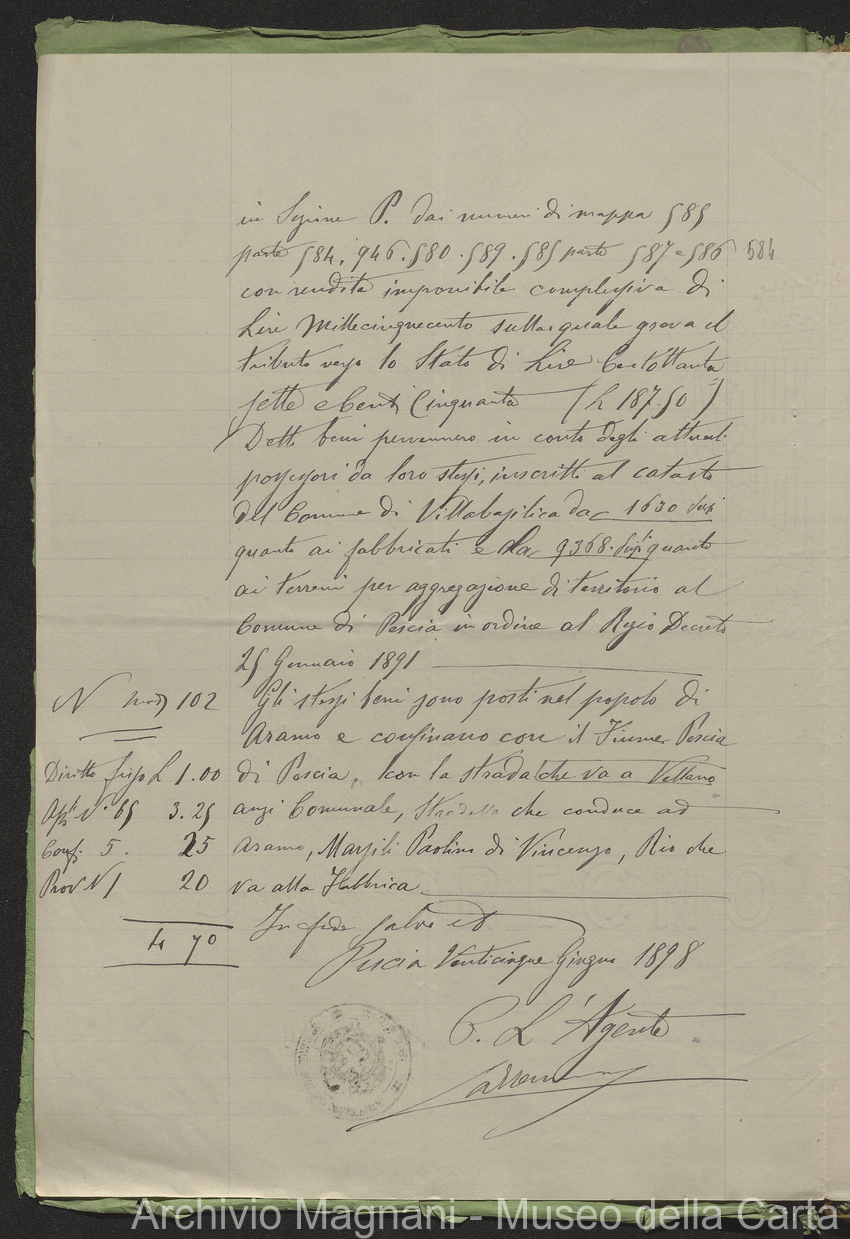 in Sezione P. dai numeri di mappa 585
parte 584. 946. 580. 589. 585 parte 587 e 586 584
con rendita imponibile complessiva di
Lire Millecinquecento sulla quale grava il
tributo verso lo Stato di Lire Centottanta
sette e Cent Cinquanta (L 187.50)
Detti beni pervennero in conto degli attuali
possessori da loro stessi, inscritti al catasto
del Comune di Villabasilica da 1630
quanto ai fabbricati e da 9368. quanto
ai terreni per aggregazione di territorio al
Comune di Pescia in ordine al Regio Decreto
25 Gennaio 1891
N Mod 102
Gli stessi beni sono posti nel popolo di
Aramo e confinano con il Fiume Pescia
Diritto fisso L 1.00
di Pescia, con la strada che va a Vellano
N. 65 3.25
anzi Comunale, Stradello che conduce ad
Conf. 5. 25
Aramo, Marsili Paolino di Vincenzo, Rio che
Prov N 1 20
va alla Fabbrica
In fede salvo
4 70
Pescia Venticinque Giugno 1898
P. L'Agente
Archivio Magnani - Museo della Carta